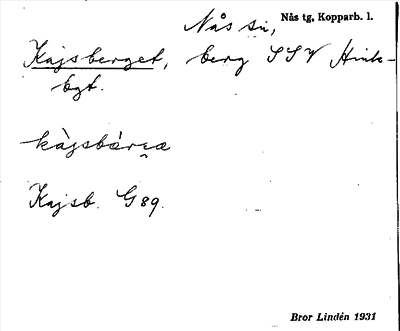 Nås sn, Nås tg, Kopparb. l.
Kajsberget, berg SSV Hink-
bgt.
kàjsbárga
Kajsb. G 89.
Bror Lindén 1931